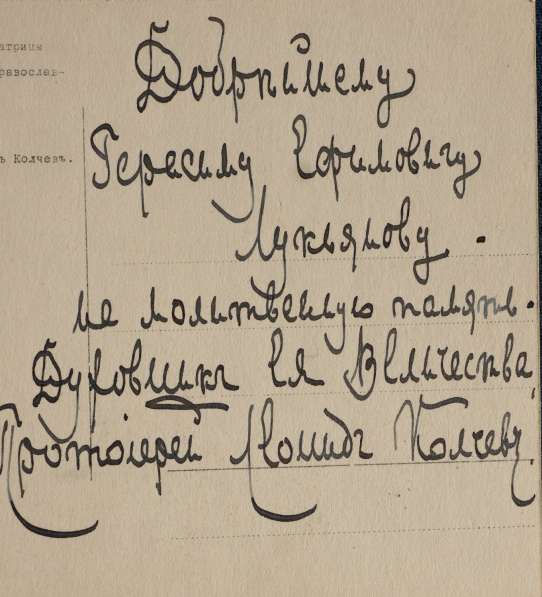 атриця
равослав-
ъ Колчевъ.
Добрѣйшему
Герасиму Ефимовичу
Лукьянову.
на молитвенную память.
Духовникъ Ея Величества
Протоіерей Леонидъ Колчевъ.